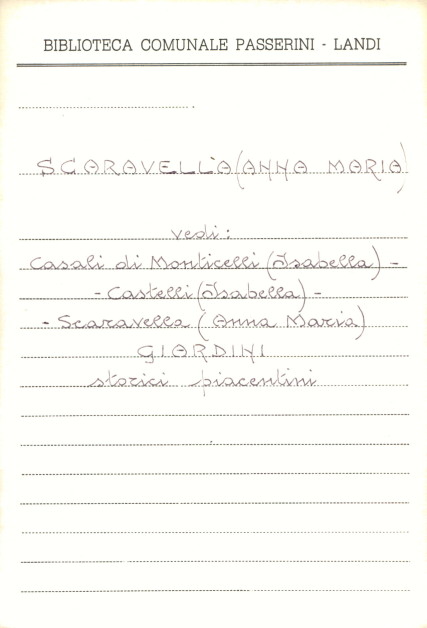 BIBLIOTECA COMUNALE PASSERINI - LANDI
SCARAVELLA (ANNA MARIA)
vedi:
Casali di Monticelli (Isabella) -
- Castelli (Isabella) -
- Scaravella (Anna Maria)
GIARDINI
storici piacentini